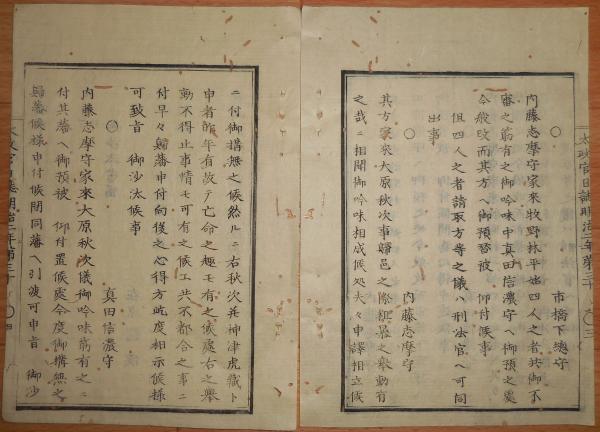 ○
市橋下總守
内藤志摩守家来牧野林平外四人之者共御不
審之筋有之御吟味中真田信濃守へ御預之處
今般改而其方へ御預替被　仰付候事
但四人之者請取方等之儀ハ刑法官へ可伺
出事
○
内藤志摩守
其方家来大原秋次事帰邑之際粗暴之挙動有
之哉ニ相聞御吟味相成候処夫々申譯相立候
ニ付御構無之候然ルニ右秋次并神津虎藏ト
申者昨年有故テ亡命之趣モ有之候處右之挙
動不得止事情モ可有之候ヘ共不都合之事ニ
付早々歸藩申付向後之心得方屹度相示候様
可致旨　御沙汰候事
○
真田信濃守
内藤志摩守家来大原秋次儀御吟味筋有之ニ
付其藩へ御預被　仰付置候處今度御構無之
歸藩候様申付候間同藩へ引渡可申旨　御沙
太政官日誌明治二年第三十　○三
太政官日誌明治二年第三十　○四